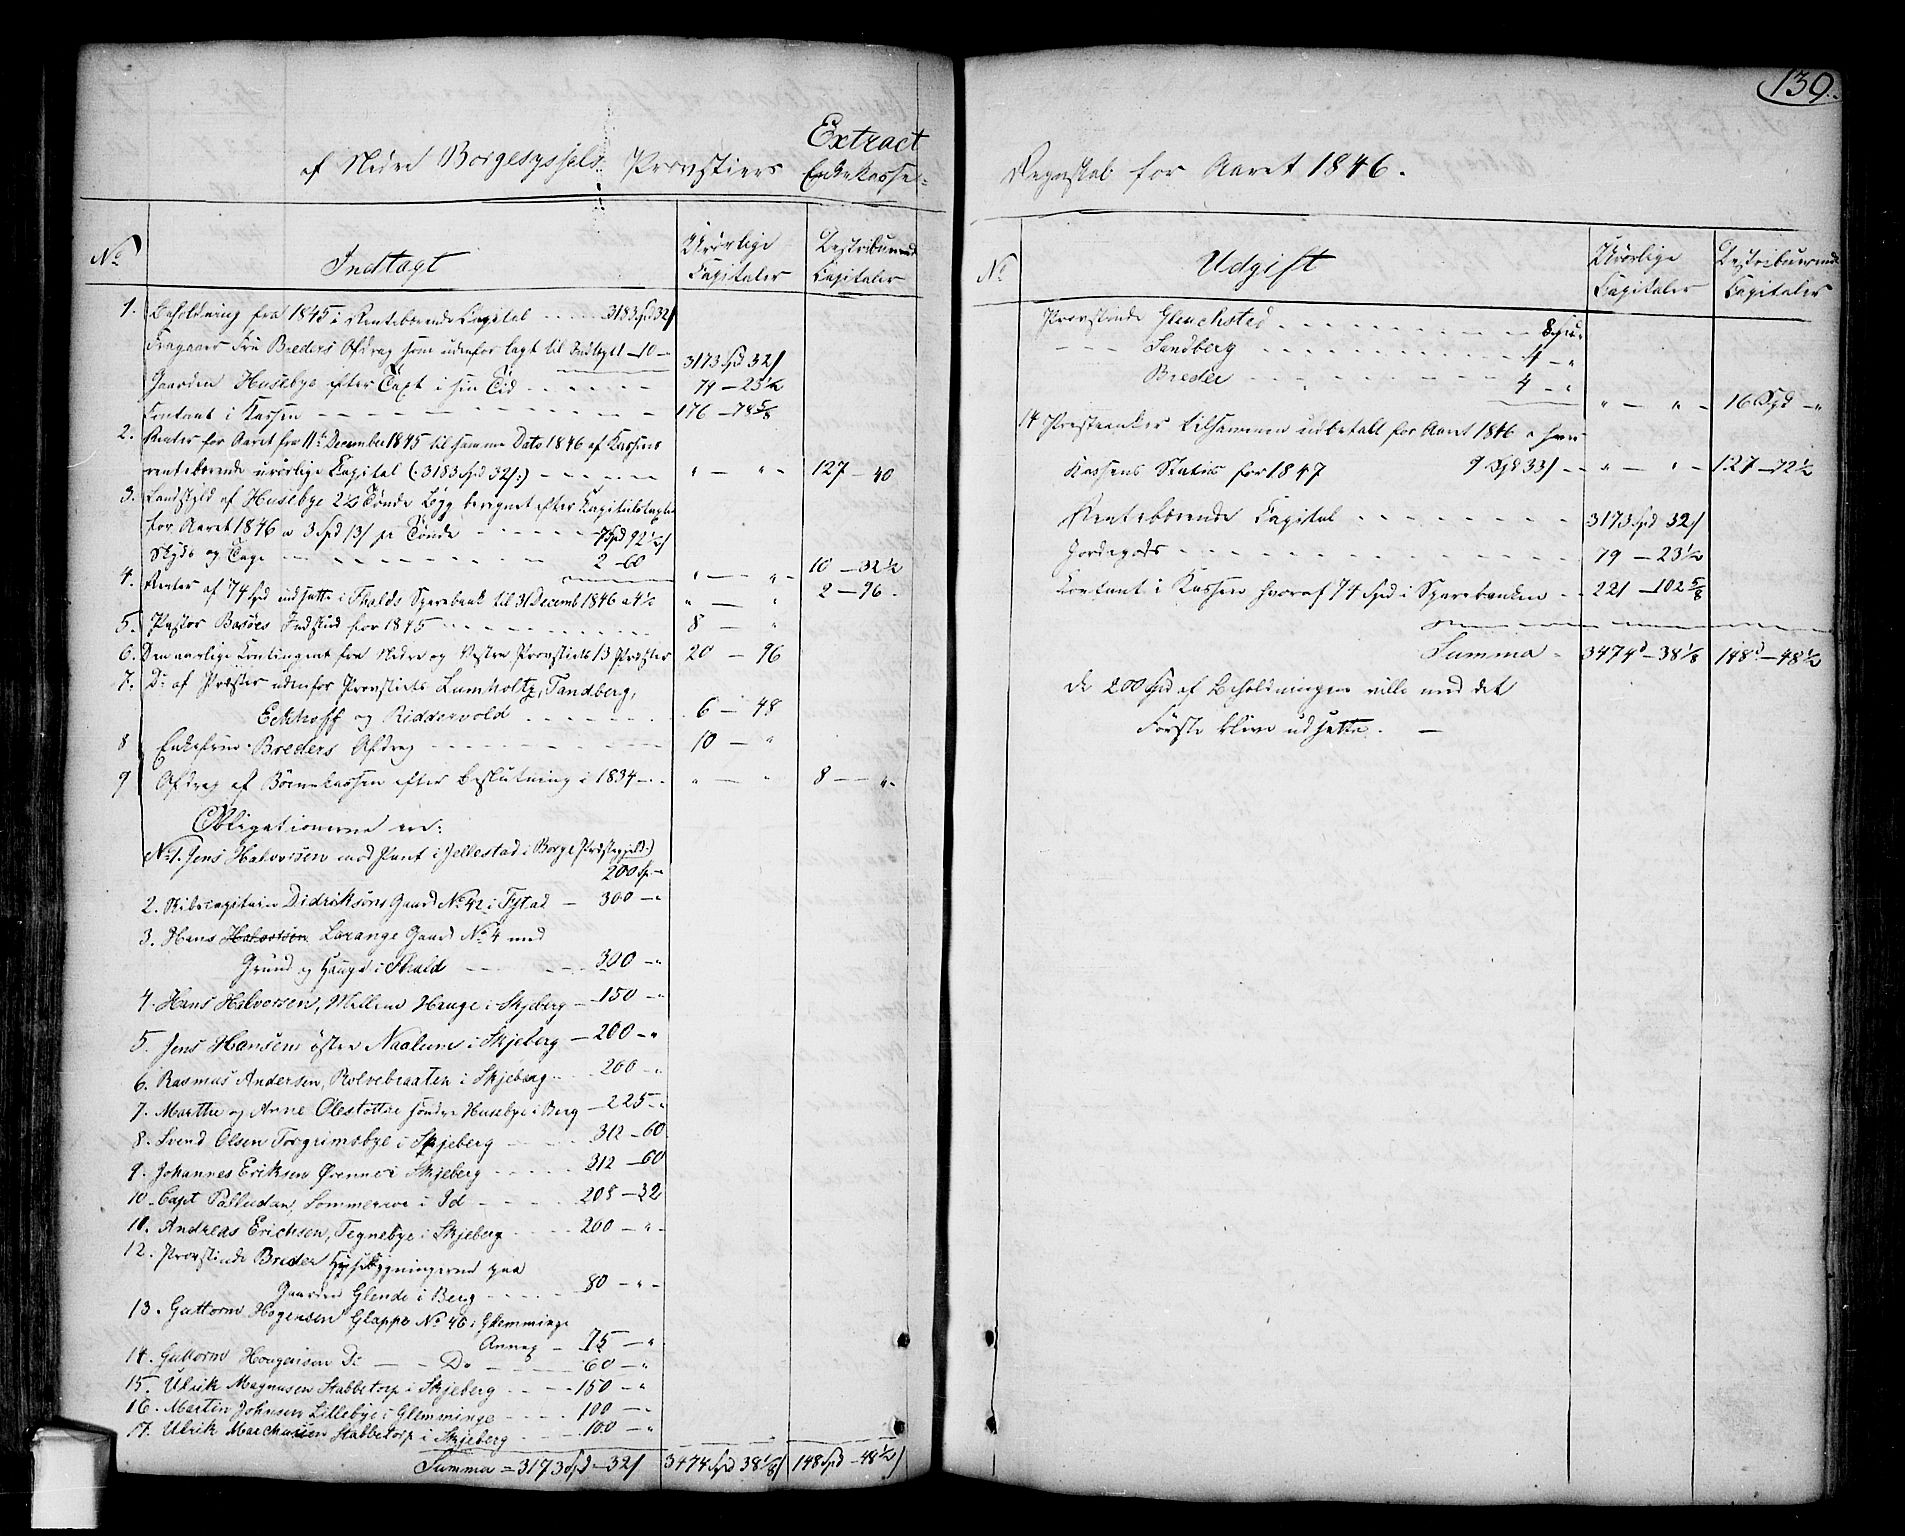 139.
Extract
af Nedre Borgesyssels Provstiers Enkekasse-
Regnskab for Aaret 1846.
No Indtægt Urørlige Capitaler Destribuerende Capitaler
1. Beholdning fra 1845 i Rentebærende Capital 3183 spd 32/
Fragaaer Fru Breders Afdrag som udenfor lagt til Indtægt - 10 - 3173 spd 32/
Gaarden Husebye efter Taxt i sin Tid 79 - 23 1/2
Contant i Kassen 176 - 78 5/8
2. Renter for Aaret fra 11te December 1845 til samme Dato 1846 af Kassens
rentebærende urørlige Capital (: 3183 spd 32/:) " - " - 127 - 40
3. Landskyld af Husebye 2 1/2 Tønde Byg beregnet efter Kapitelstaxten
for Aaret 1846 a 3 spd 13/ pr Tønde 7 spd 92 1/2/
Skyds og Tage 2 - 60 " - " - 10 - 32 1/2
4. Renter af 74 spd indsatte i Fhalds Sparebank til 31 Decemb 1846 a 4 1/2 " - " 2 - 96.
5. Pastor Basøes Indskud for 1845 8 - "
6. Den aarlige Contingent fra Nedre og Vestre Provstiets 13 Præster 20 - 96
7. Do af Præster udenfor Provstiets Lumholtz, Tandberg,
Eckhoff og Riddervold 6 - 48
8 Enkefrue Breders Afdrag 10 - "
9 Afdrag af Børnekassen efter Beslutning i 1834 - " - " 8 - "
Obligationerne ere:
No 1. Jens Halvorsen med Pant i Jellestad i Borge Præstegjeld:)
200 sp -
2. Didriksøns Gaard No 42 i Fstad - 300 - "
3. Hans Halvorsen Larange Gaard No 4 med
Grund og Hauge i Fhald 300 - "
4. Hans Halvorsen, Mellem Hauge i Skjeberg - 150 - "
5. Jens Hansen østre Naalum i Skjeberg - 200 - "
6. Rasmus Andersen, Rolvebraaten i Skjeberg 200 - "
7. Marthe og Anne Olesdøttre søndre Husebye i Berg - 225 - "
8. Svend Olsen Torgrimsbye i Skjeberg 312 - 60
9. Johannes Eriksen Ørenne i Skjeberg 312 - 60
10. Capt Palludan, Sommeroe i Id 208 - 32
11. Andreas Erichsen, Tegnebye i Skjeberg 200 - "
12. Provstinde Breder Huusbygningerne paa
Gaarden Glende i Berg 80 - " -
13. Guttorm Hogensen Glappe No 46 i Glemminge
Annex - 75 - "
14. Guttorm Hougensen Do - - Do - 60 - "
15. Ulrik Magnusen Stabbetorp i Skjeberg 150 - "
16. Martin Johnsen Lillebye i Glemminge 100 - "
17. Ulrik Marchusen Stabbetorp i Skjeberg 100 - "
Summa = 3173 spd - 32/ 3474 spd 38 1/8/ 148 spd - 48 1/2/
No Udgift Urørlige Capitaler Destribuerende Capitaler
Provstinde Gluchsted 8 spd "
- - Sandberg 4 - "
Breder 4 - " " - " - 16 Spd - "
14 Præsteenker tilsammen udbetalt for Aaret 1846 a hver
9 Spd 33/ - " - " - 127 - 72 1/2
Kassens Status for 1847
Rentebærende Capital 3173 spd 32/
Jordegods 79 - 23 1/2
Contant i Kassen hvoraf 74 spd i Sparebanken 221 - 102 5/8
Summa - 3474 d - 38 1/8 148 d - 48 1/2
De 200 spd af Beholdningen ville med det
Første blive udsatte. -